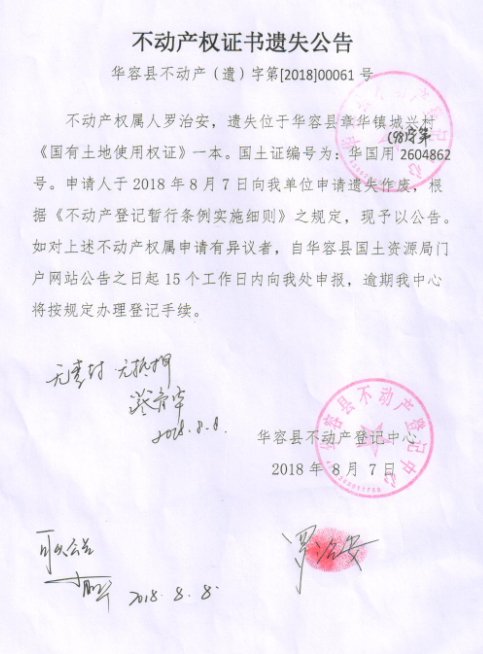 不动产权证书遗失公告
华容县不动产（遗）字第[2018]00061 号
不动产权属人罗治安，遗失位于华容县章华镇城兴村
《国有土地使用权证》一本。国土证编号为：华国用(98)字第2604862
号。申请人于 2018 年 8 月 7 日向我单位申请遗失作废，根
据《不动产登记暂行条例实施细则》之规定，现予以公告。
如对上述不动产权属申请有异议者，自华容县国土资源局门
户网站公告之日起 15 个工作日内向我处申报，逾期我中心
将按规定办理登记手续。
无查封 无抵押
2018.8.8.
华容县不动产登记中心
2018 年 8 月 7 日
华容县不动产登记中心
可以公告
2018.8.8.
罗治安